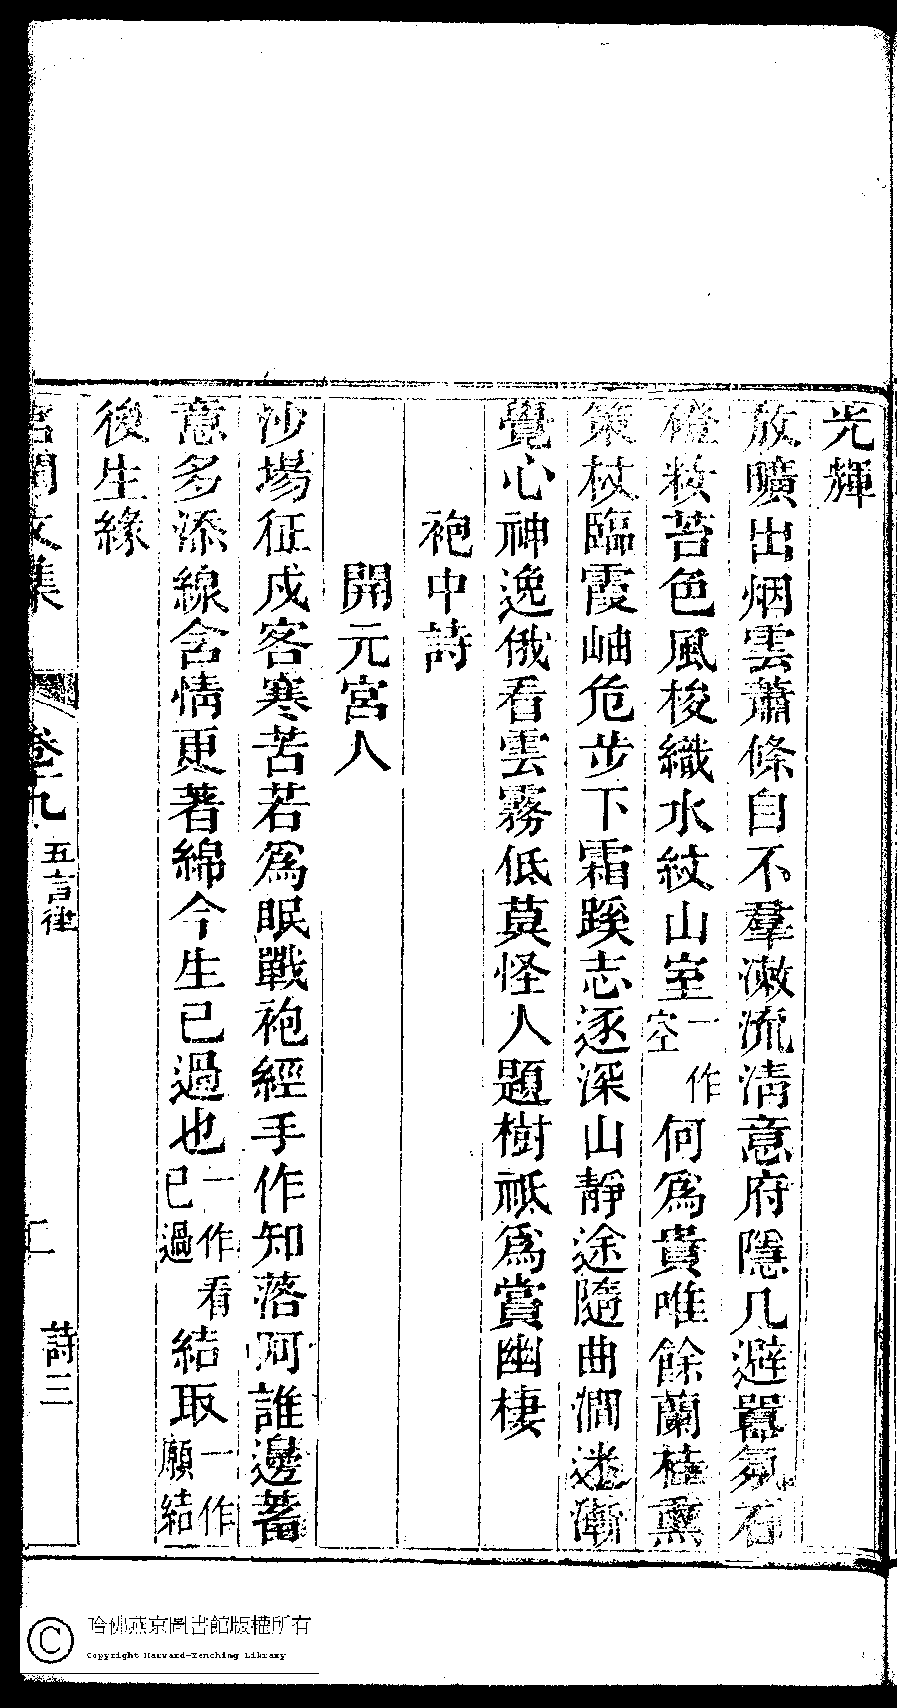 光輝
放曠出烟雲蕭條自不羣漱流清意府隱几避囂氛石
磴粧苔色風梭織水紋山室一作空何為貴唯餘蘭桂熏
策杖臨霞岫危步下霜蹊志逐深山靜途隨曲澗迷漸
覺心神逸俄看雲霧低莫怪人題樹祗為賞幽棲
袍中詩
開元宮人
沙場征戍客寒苦若為眠戰袍經手作知落阿誰邊蓄
意多添線含情更著綿今生已過也一作看已過結取一作願結
後生緣
宮閨文集 卷十九 五言律 二 詩三
哈佛燕京圖書館版權所有
Copyright Harvard-Yenching Library